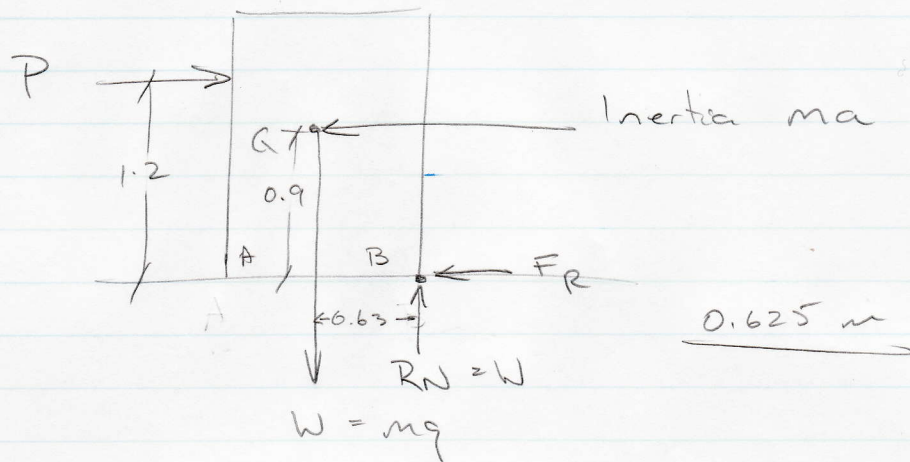 P
Inertia ma
G
1.2
0.9
A
B
F_R
A
0.63
0.625 m
R_N = W
W = mg